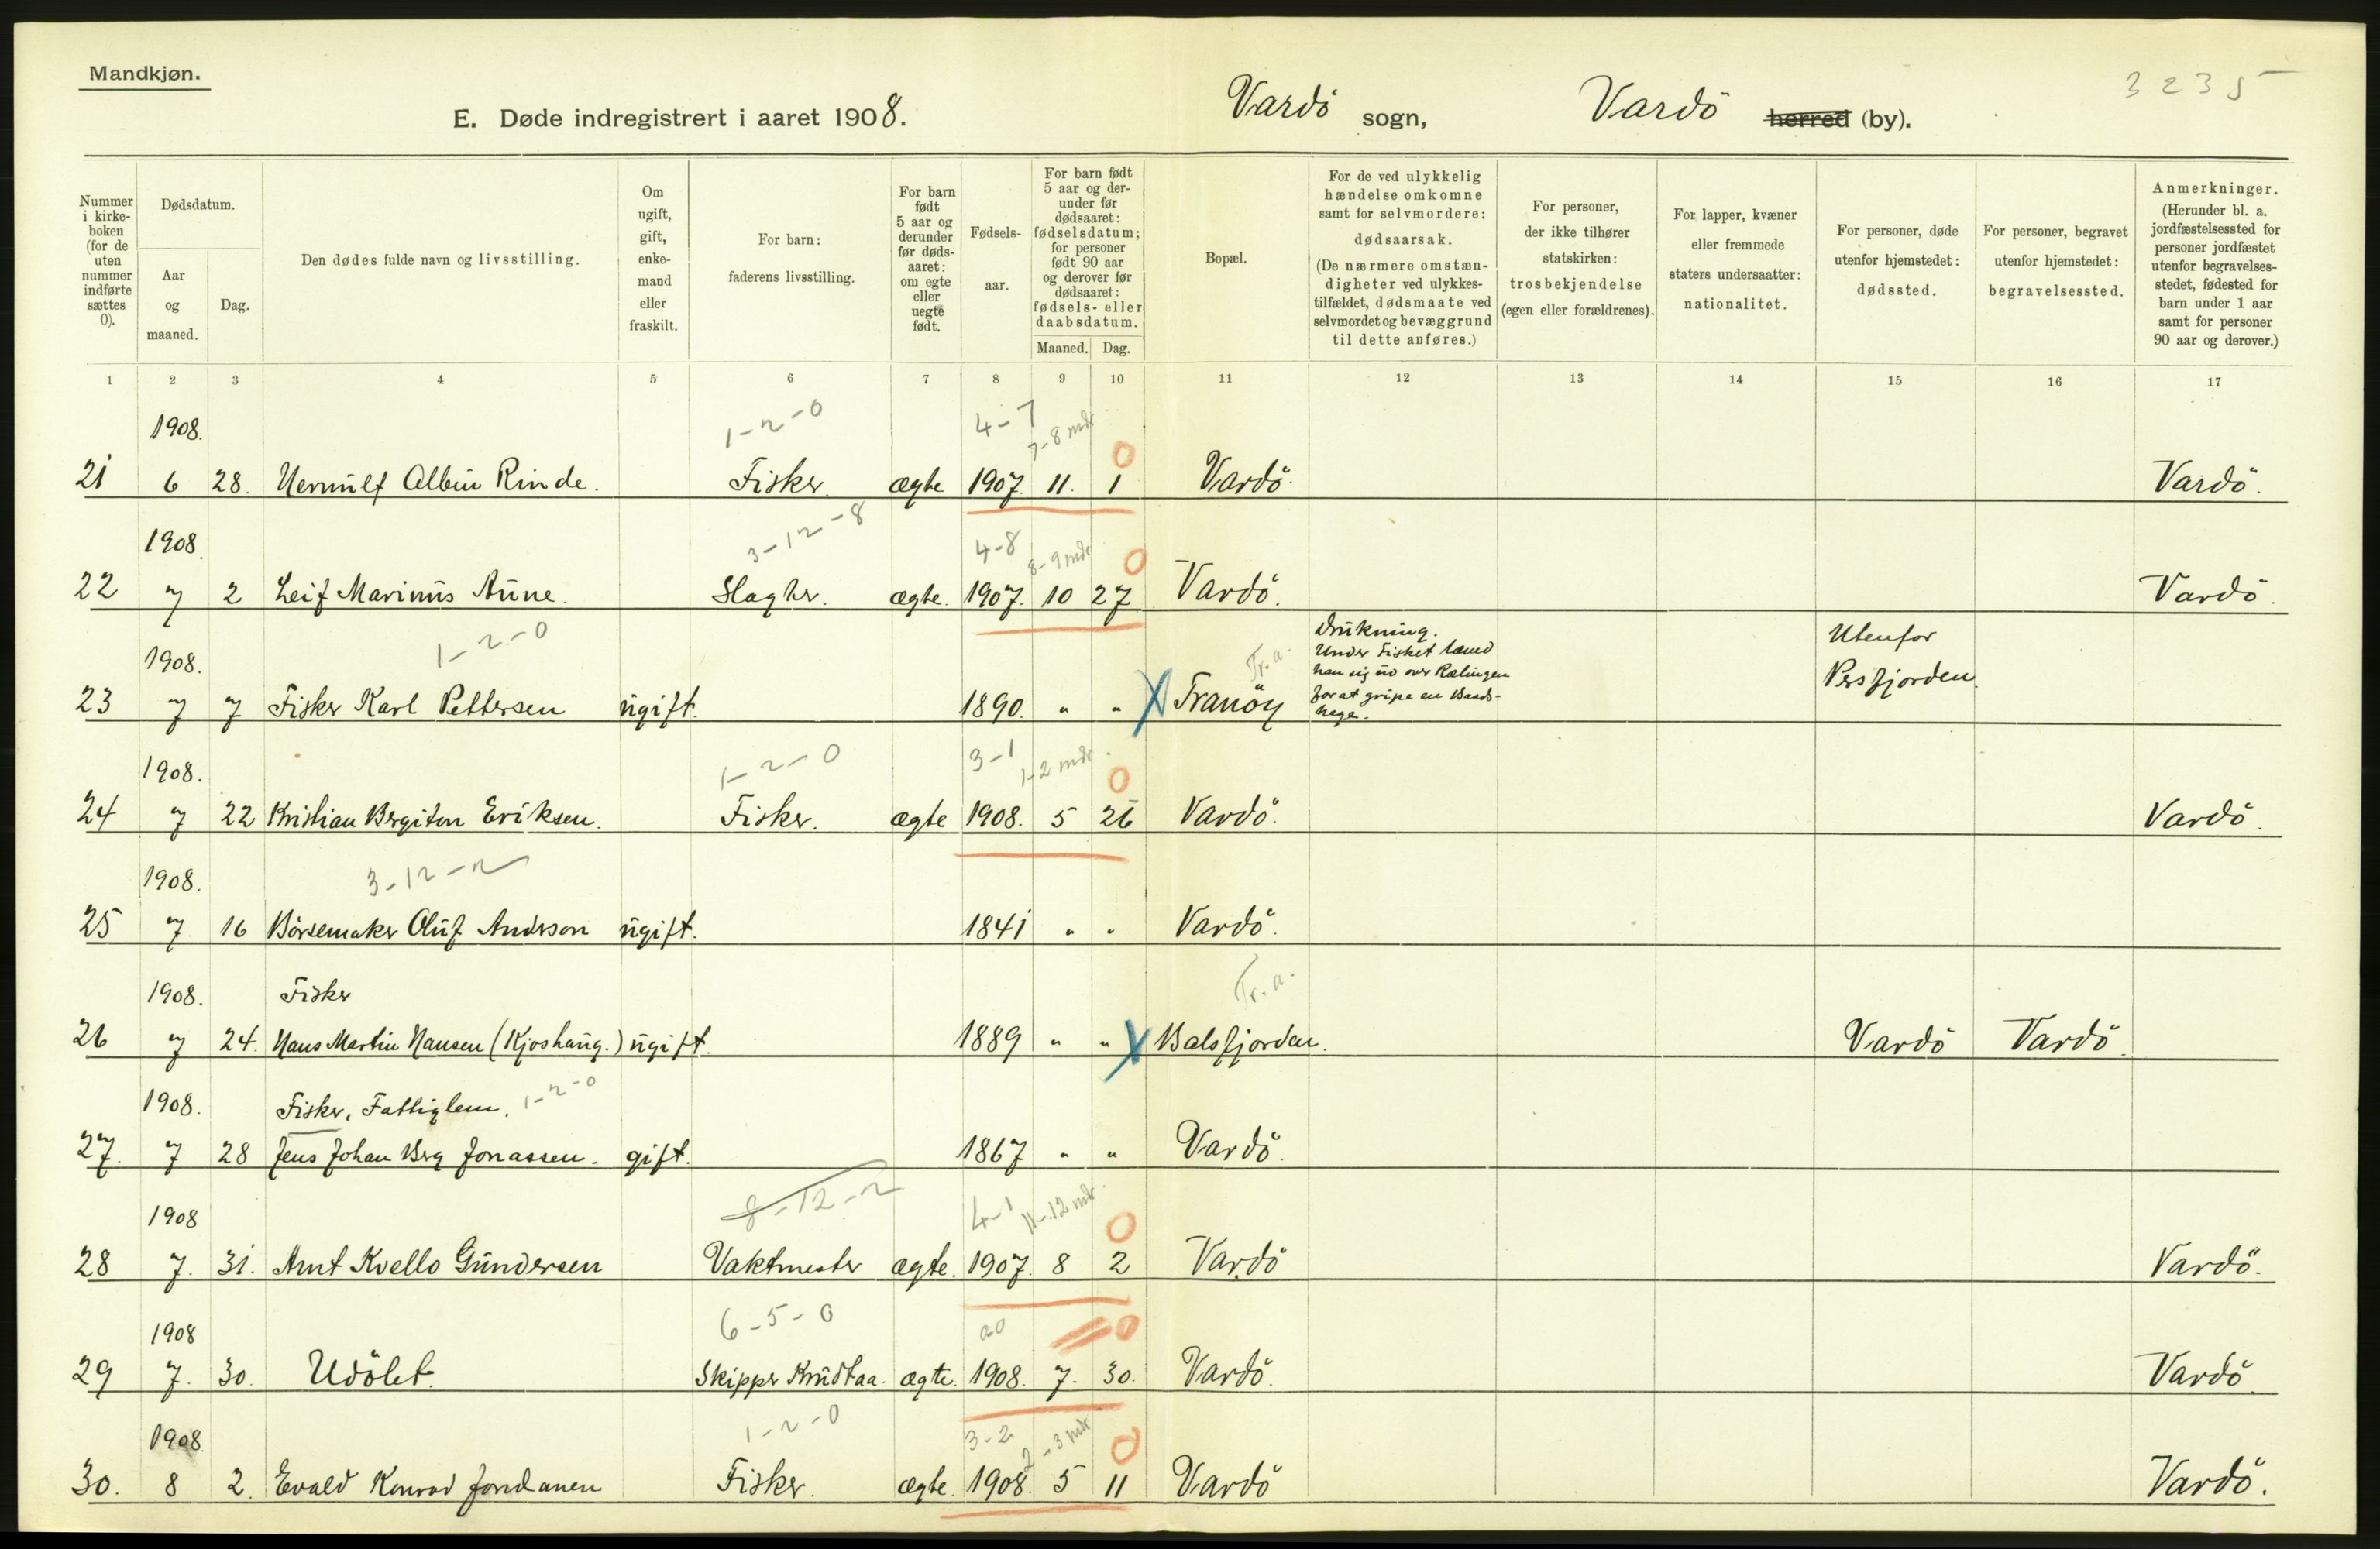 Mandkjøn.
3235
E. Døde indregistrert i aaret 1908.
Vardö sogn, Vardö herred (by).
Nummer i kirke-boken (for de uten nummer indførte sættes 0).
Dødsdatum.
Aar og maaned.
Dag.
Den dødes fulde navn og livsstilling.
Om ugift, gift, enke-mand eller fraskilt.
For barn: faderens livsstilling.
For barn født 5 aar og derunder før døds-aaret: om egte eller uegte født.
Fødsels-aar.
For barn født 5 aar og der-under før dødsaaret: fødselsdatum; for personer født 90 aar og derover før dødsaaret: fødsels- eller daabsdatum.
Maaned. Dag.
Bopæl.
For de ved ulykkelig hændelse omkomne samt for selvmordere: dødsaarsak. (De nærmere omstæn-digheter ved ulykkes-tilfældet, dødsmaate ved selvmordet og bevæggrund til dette anføres.)
For personer, der ikke tilhører statskirken: trosbekjendelse (egen eller forældrenes).
For lapper, kvæner eller fremmede staters undersaatter: nationalitet.
For personer, døde utenfor hjemstedet: dødssted.
For personer, begravet utenfor hjemstedet: begravelsessted.
Anmerkninger. (Herunder bl. a. jordfæstelsessted for personer jordfæstet utenfor begravelses-stedet, fødested for barn under 1 aar samt for personer 90 aar og derover.)
1 2 3 4 5 6 7 8 9 10 11 12 13 14 15 16 17
1908. 1-2-0 4-7 7-8 mdr 0
21 6 28. Albin Rinde. Fisker. ægte 1907. 11. 1 Vardö. Vardö.
1908. 3-12-8 4-8 8-9 mdr 0
22 7 2 Leif Marinus Aune. Slagter. ægte. 1907. 10 27 Vardö. Vardö.
1908. 1-2-0 Tr. a.
23 7 7 Fisker Karl Pettersen ugift. 1890. " " X Tranöy
Drukning.
Under Fisket
han sig ud over Rælingen
for at gripe en Baads-
hage.
Utenfor
Persfjorden.
1908. 1-2-0 3-1 1-2 mdr. 0
24 7 22 Kristian Bergiton Eriksen. Fisker. ægte 1908. 5 26 Vardö. Vardö.
1908. 3-12-2
25 7 16 Börsemaker Oluf Anderson ugift. 1841 " " Vardö.
1908. Fisker Tr. a.
26 7 24. Hans Martin Hansen (Kjoshaug.) ugift. 1889 " " X Balsfjorden. Vardö Vardö.
1908. Fisker, Fattiglem. 1-2-0
27. 7 28 Jens Johan Berg Jonassen. gift. 1867 " " Vardö.
1908 8-12-2 4-1 11-12 mdr. 0
28 7. 31. Arnt Kvello Gundersen Vaktmester ægte. 1907. 8 2 Vardö Vardö.
1908 6-5-0 00 0
29 7. 30. Udöbt. Skipper Knudtaa. ægte. 1908. 7. 30. Vardö. Vardö.
1908 1-2-0 3-2 2-3 mdr 0
30. 8 2. Evald Konrad Fisker. ægte. 1908. 5 11 Vardö Vardö.